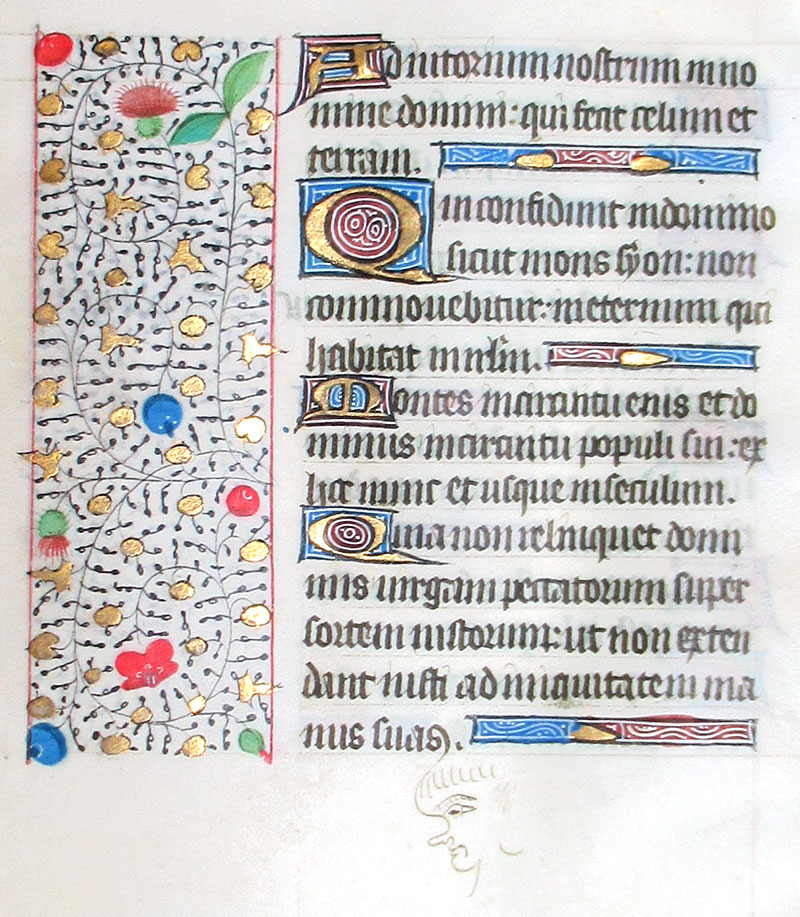 Adiutorium nostrum in no
mine domini: qui fecit celum et
terram.
Qui confidunt in domino
sicut mons syon: non
commovebitur: in eternum qui
habitat in ihrlm.
Montes in circuitu eius et do
minus in circuitu populi sui: ex
hoc nunc et usque in seculum.
Quia non relinquet domi
nus virgam peccatorum super
sortem iustorum: ut non exten
dant iusti ad iniquitatem ma
nus suas.